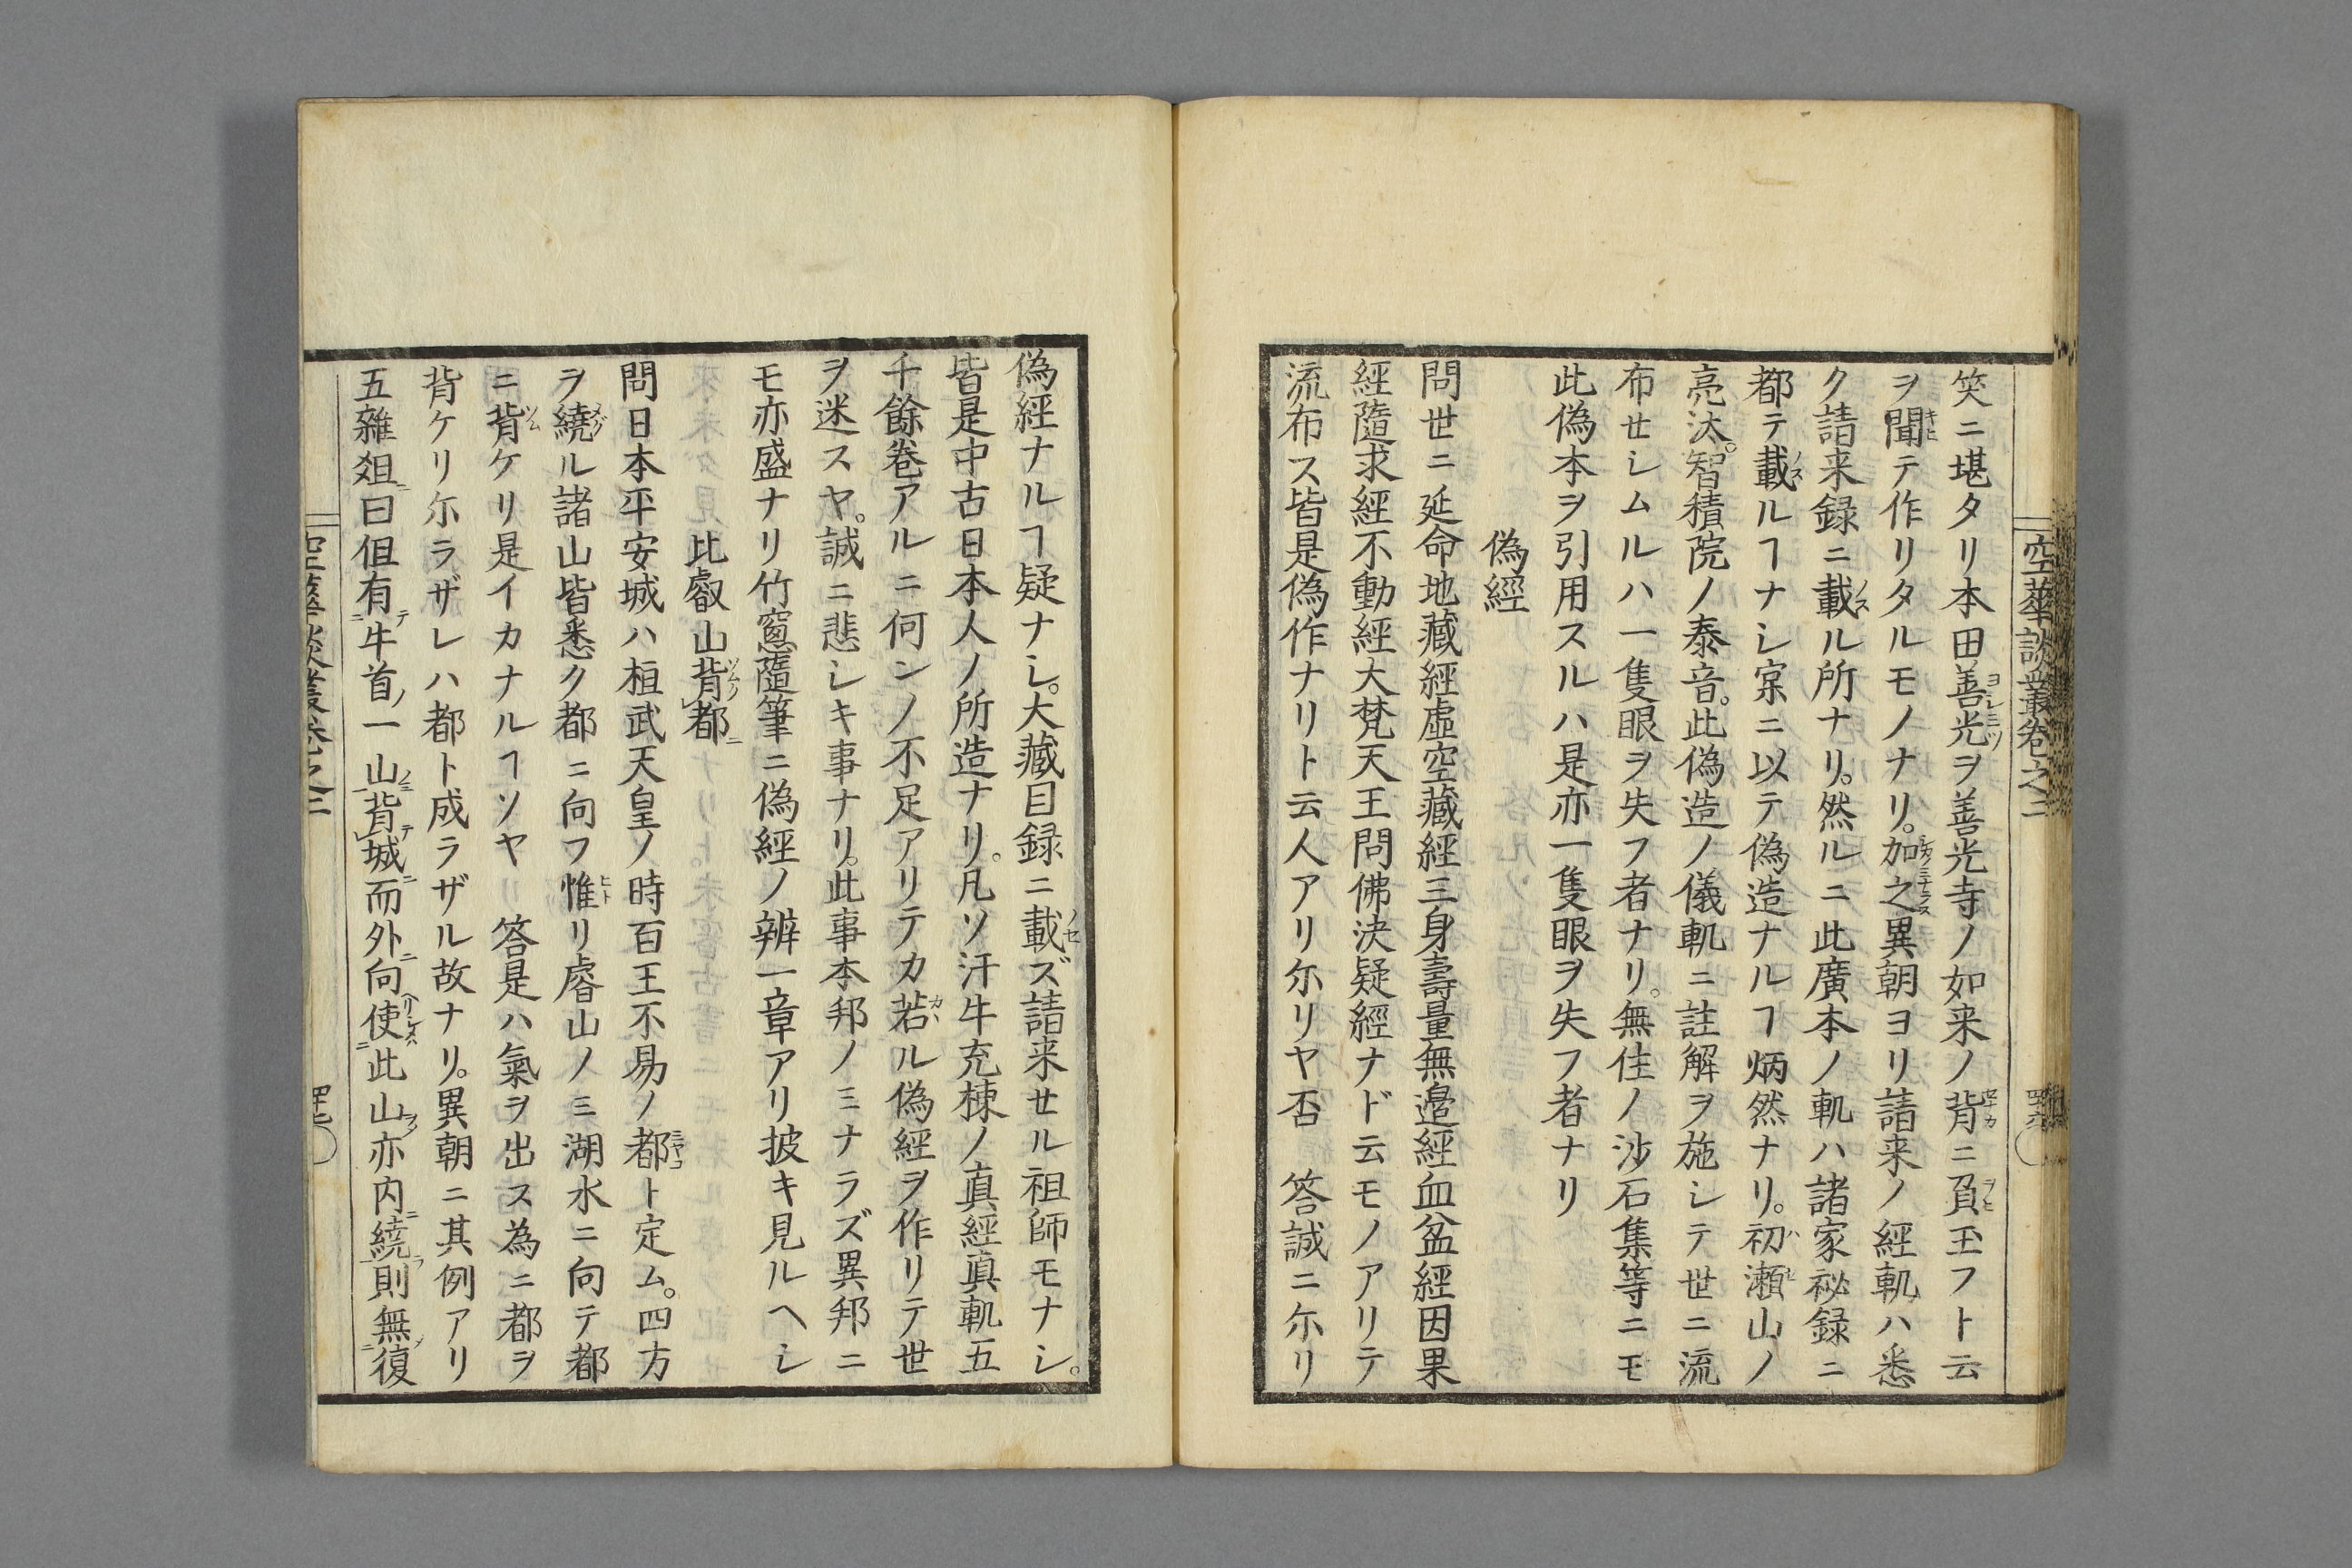 空華談叢卷之三
四十六
笑ニ堪タリ本田善光ヲ善光寺ノ如来ノ背ニ負玉フト云
ヲ聞テ作リタルモノナリ。加之異朝ヨリ請来ノ經軌ハ悉
ク請来録ニ載ル所ナリ。然ルニ此廣本ノ軌ハ諸家祕録ニ
都テ載ルヿナシ寔ニ以テ偽造ナルヿ炳然ナリ。初瀬山ノ
亮汰。智積院ノ泰音。此偽造ノ儀軌ニ註解ヲ施シテ世ニ流
布セシムルハ一隻眼ヲ失フ者ナリ。無住ノ沙石集等ニモ
此偽本ヲ引用スルハ是亦一隻眼ヲ失フ者ナリ
偽經
問世ニ延命地藏經虛空藏經三身壽量無邉經血盆經因果
經隨求經不動經大梵天王問佛決疑經ナド云モノアリテ
流布ス皆是偽作ナリト云人アリ尓リヤ否　答誠ニ尓リ
偽經ナルヿ疑ナシ。大藏目録ニ載ズ請来セル祖師モナシ。
皆是中古日本人ノ所造ナリ。凡ソ汗牛充棟ノ眞經眞軌五
千餘卷アルニ何ンノ不足アリテカ若ル偽經ヲ作リテ世
ヲ迷スヤ。誠ニ悲シキ事ナリ。此事本邦ノミナラズ異邦ニ
モ亦盛ナリ竹窻隨筆ニ偽經ノ辨一章アリ披キ見ルヘシ
比叡山背都
問日本平安城ハ桓武天皇ノ時百王不易ノ都ト定ム。四方
ヲ繞ル諸山皆悉ク都ニ向フ惟リ睿山ノミ湖水ニ向テ都
ニ背ケリ是イカナルヿソヤ　答是ハ氣ヲ出ス為ニ都ヲ
背ケリ尓ラザレハ都ト成ラザル故ナリ。異朝ニ其例アリ
五雜爼曰但有牛首一山背城而外向使此山亦内繞則無復
空華談叢卷之三
四十七